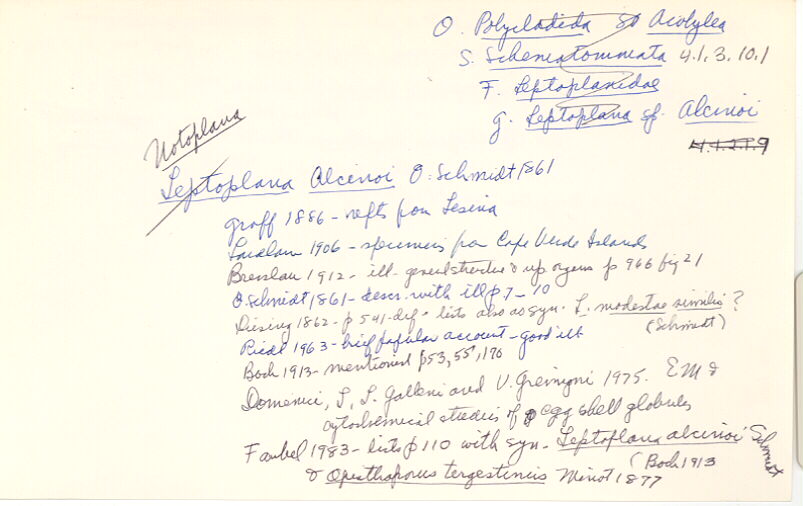 O. Polycladida so Acotylea
S. Schematommata 4.1.3.10.1
F. Leptoplanidae
g. Leptoplana sp. Alcinoi
4.4.27.9
Notoplana
Leptoplana Alcinoi O. Schmidt 1861
Graff 1886 - refts from Lesina
Laidlaw 1906 - specimens from Cape Verde Islands
Bresslau 1912 - ill - general structure & rep organs p 966 fig 21
O. Schmidt 1861 - descr. with ill p 7 - 10
Diesing 1862 - p 541 - def - lists also as syn. L. modestae similis ?
(Schmidt)
Riedl 1963 - brief popular account - good ill
Bock 1913 - mentioned p 53, 55, 170
Domenici, L., L. Galleni and V. Gremigni 1975. EM &
cytochemical studies of egg shell globules
Faubel 1983 - lists p 110 with syn - Leptoplana alcinoi Schmidt
(Bock 1913
& Opisthoporus tergestinus Minot 1877